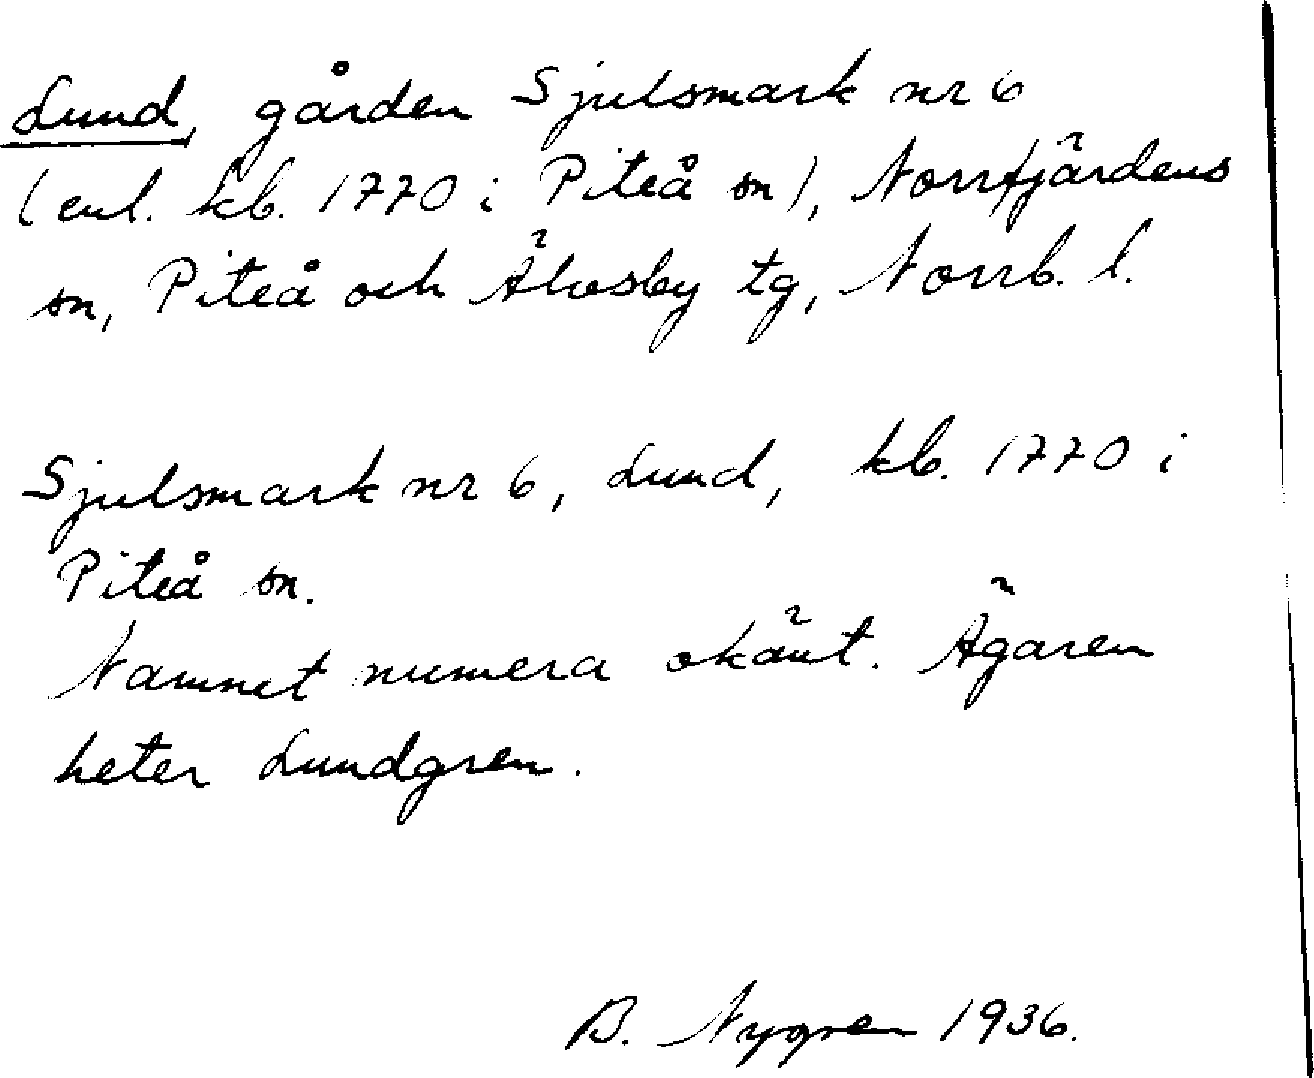 Lund, gården Sjulsmark nr 6
(enl. kb. 1770 i Piteå sn), Norrfjärdens
sn, Piteå och Älvsby tg, Norrb. l.
Sjulsmark nr 6, Lund, kb. 1770 i
Piteå sn.
Namnet numera okänt. Ägaren
heter Lundgren.
B. Nygren 1936.